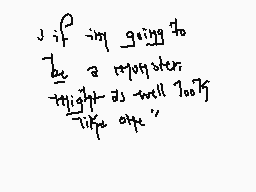 " if im going to
be a monster,
might as well look
like one "